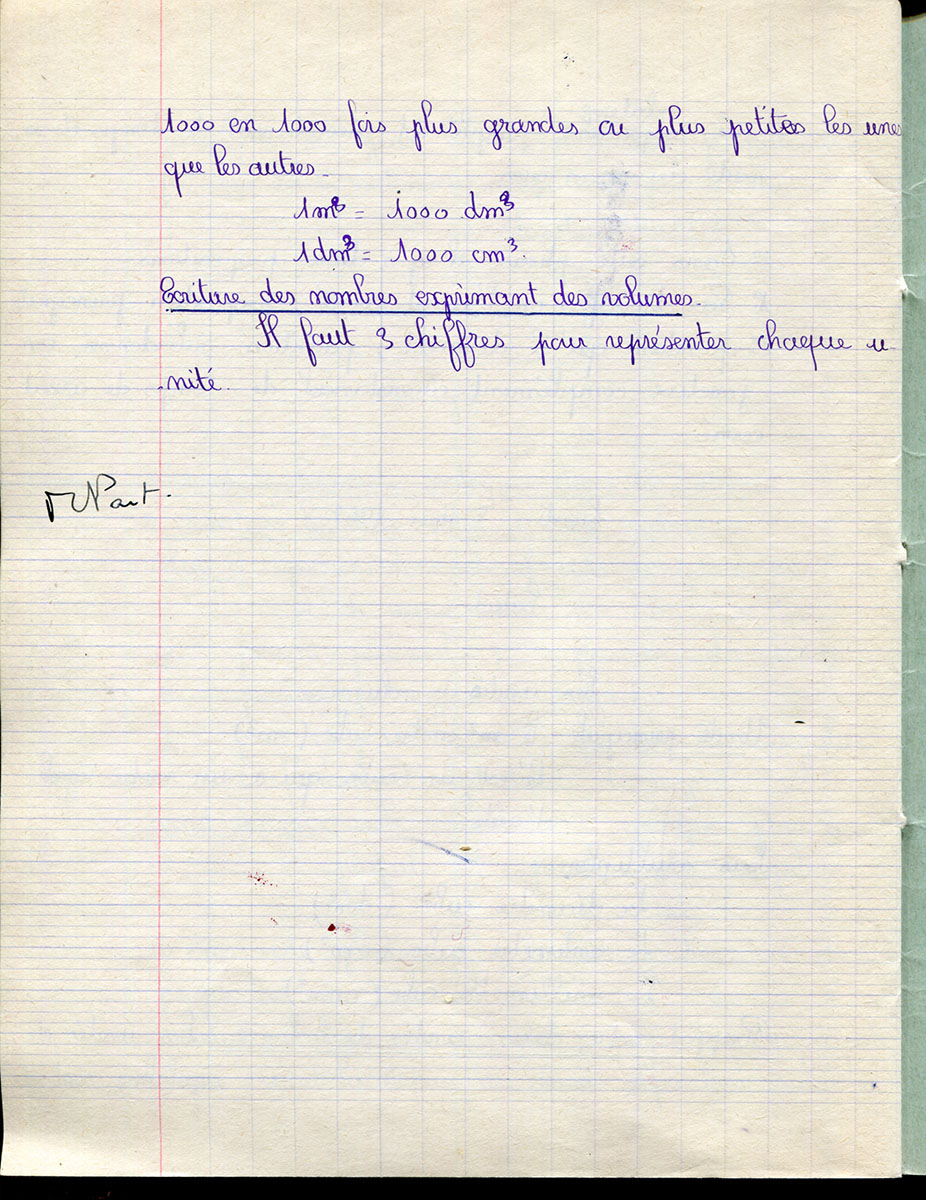 1000 en 1000 fois plus grandes ou plus petites les unes
que les autres.
1m³ = 1000 dm³
1dm³ = 1000 cm³.
Ecriture des nombres exprimant des volumes.
Il faut 3 chiffres pour représenter chaque u
nité.